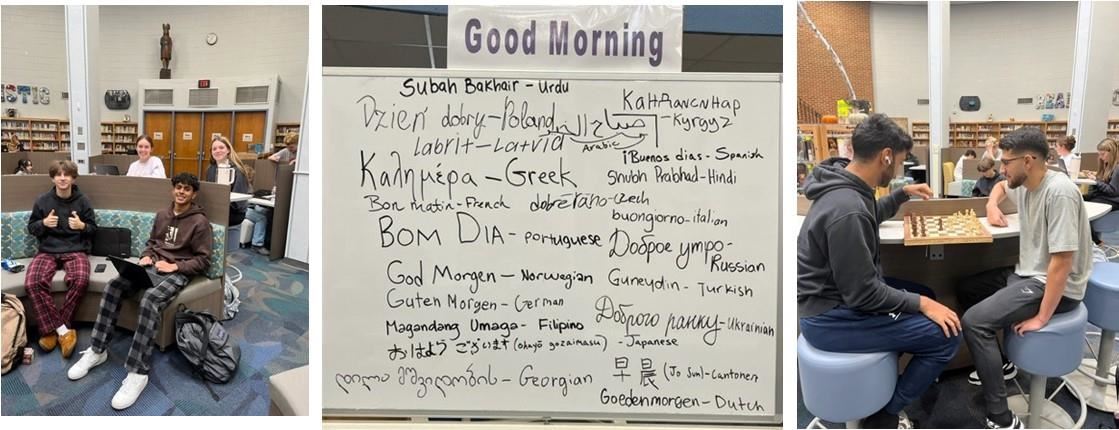 STIC
EXIT
Good Morning
Subah Bakhair - Urdu
Dzień dobry - Poland
Labrit - Latvia
صباح الخير
Arabic
Καλημέρα - Greek
Bon matin - French
BOM DIA - portuguese
God Morgen - Norwegian
Guten Morgen - German
Magandang Umaga - Filipino
おはよう ございます (ohayō gozaimasu) - Japanese
დილა მშვიდობის - Georgian
- Kyrgyz
¡Buenos dias - Spanish
Shubh Prabhad - Hindi
dobré ráno - czech
buongiorno - italian
Доброе утро -
Russian
Guneydin - Turkish
Доброго ранку - Ukrainian
早晨 (Jo Sun) - Cantonen
Goedenmorgen - Dutch